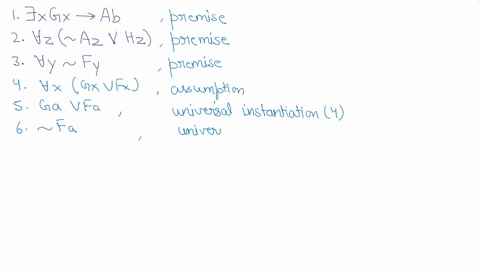 1. ∃xGx → Ab , premise
2. ∀z (~Az ∨ Hz) , premise
3. ∀y ~ Fy , premise
4. ∀x (Gx ∨ Fx) , assumption
5. Ga ∨ Fa , universal instantiation (4)
6. ~ Fa , univer